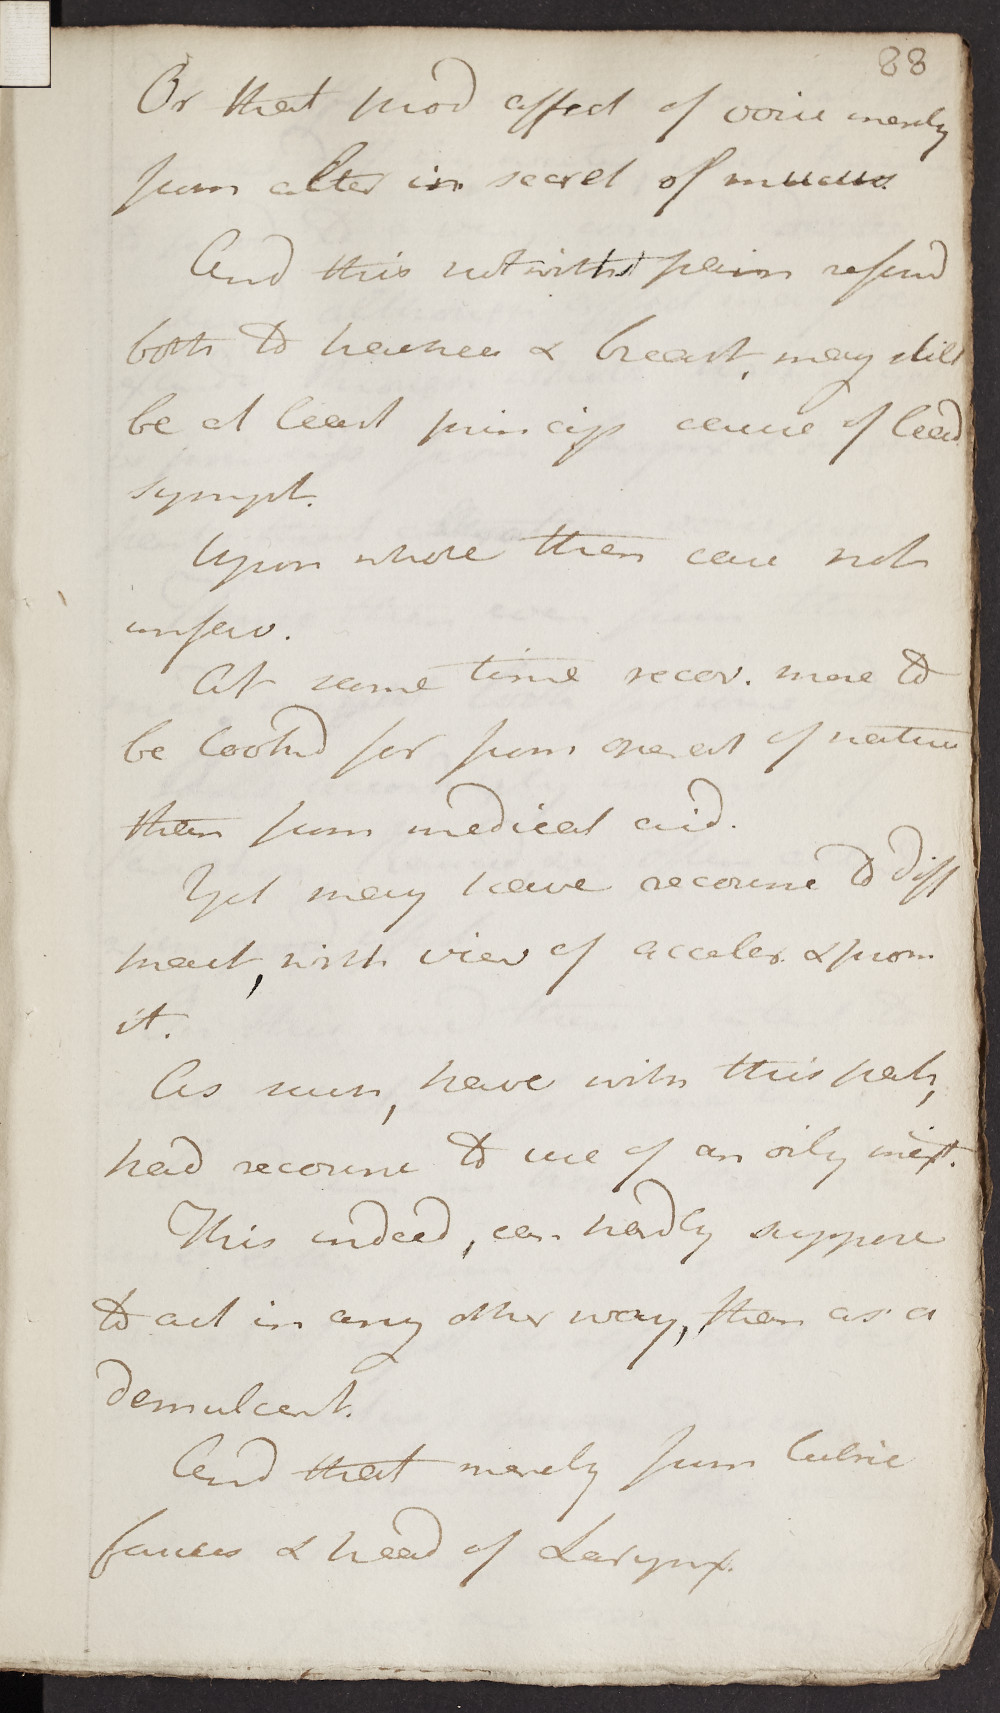 88
Or that prod affect of voice merely
from alter in secret of mucus
And this notwithst pain referd
both to trachea & breast, may still
be at least princip cause of lead
sympt.
Upon whole then case not
unfav.
At same time recov. more to
be lookd for from operat of nature
than from medical aid.
Yet may have recourse to diff
meat, with view of acceler. & prom
it.
As such, have with this pat,
had recourse to use of an oily mixt.
This indeed, can hardly suppose
to act in any other way, than as a
demulcent.
And that merely from lubric
fauces & head of Larynx.